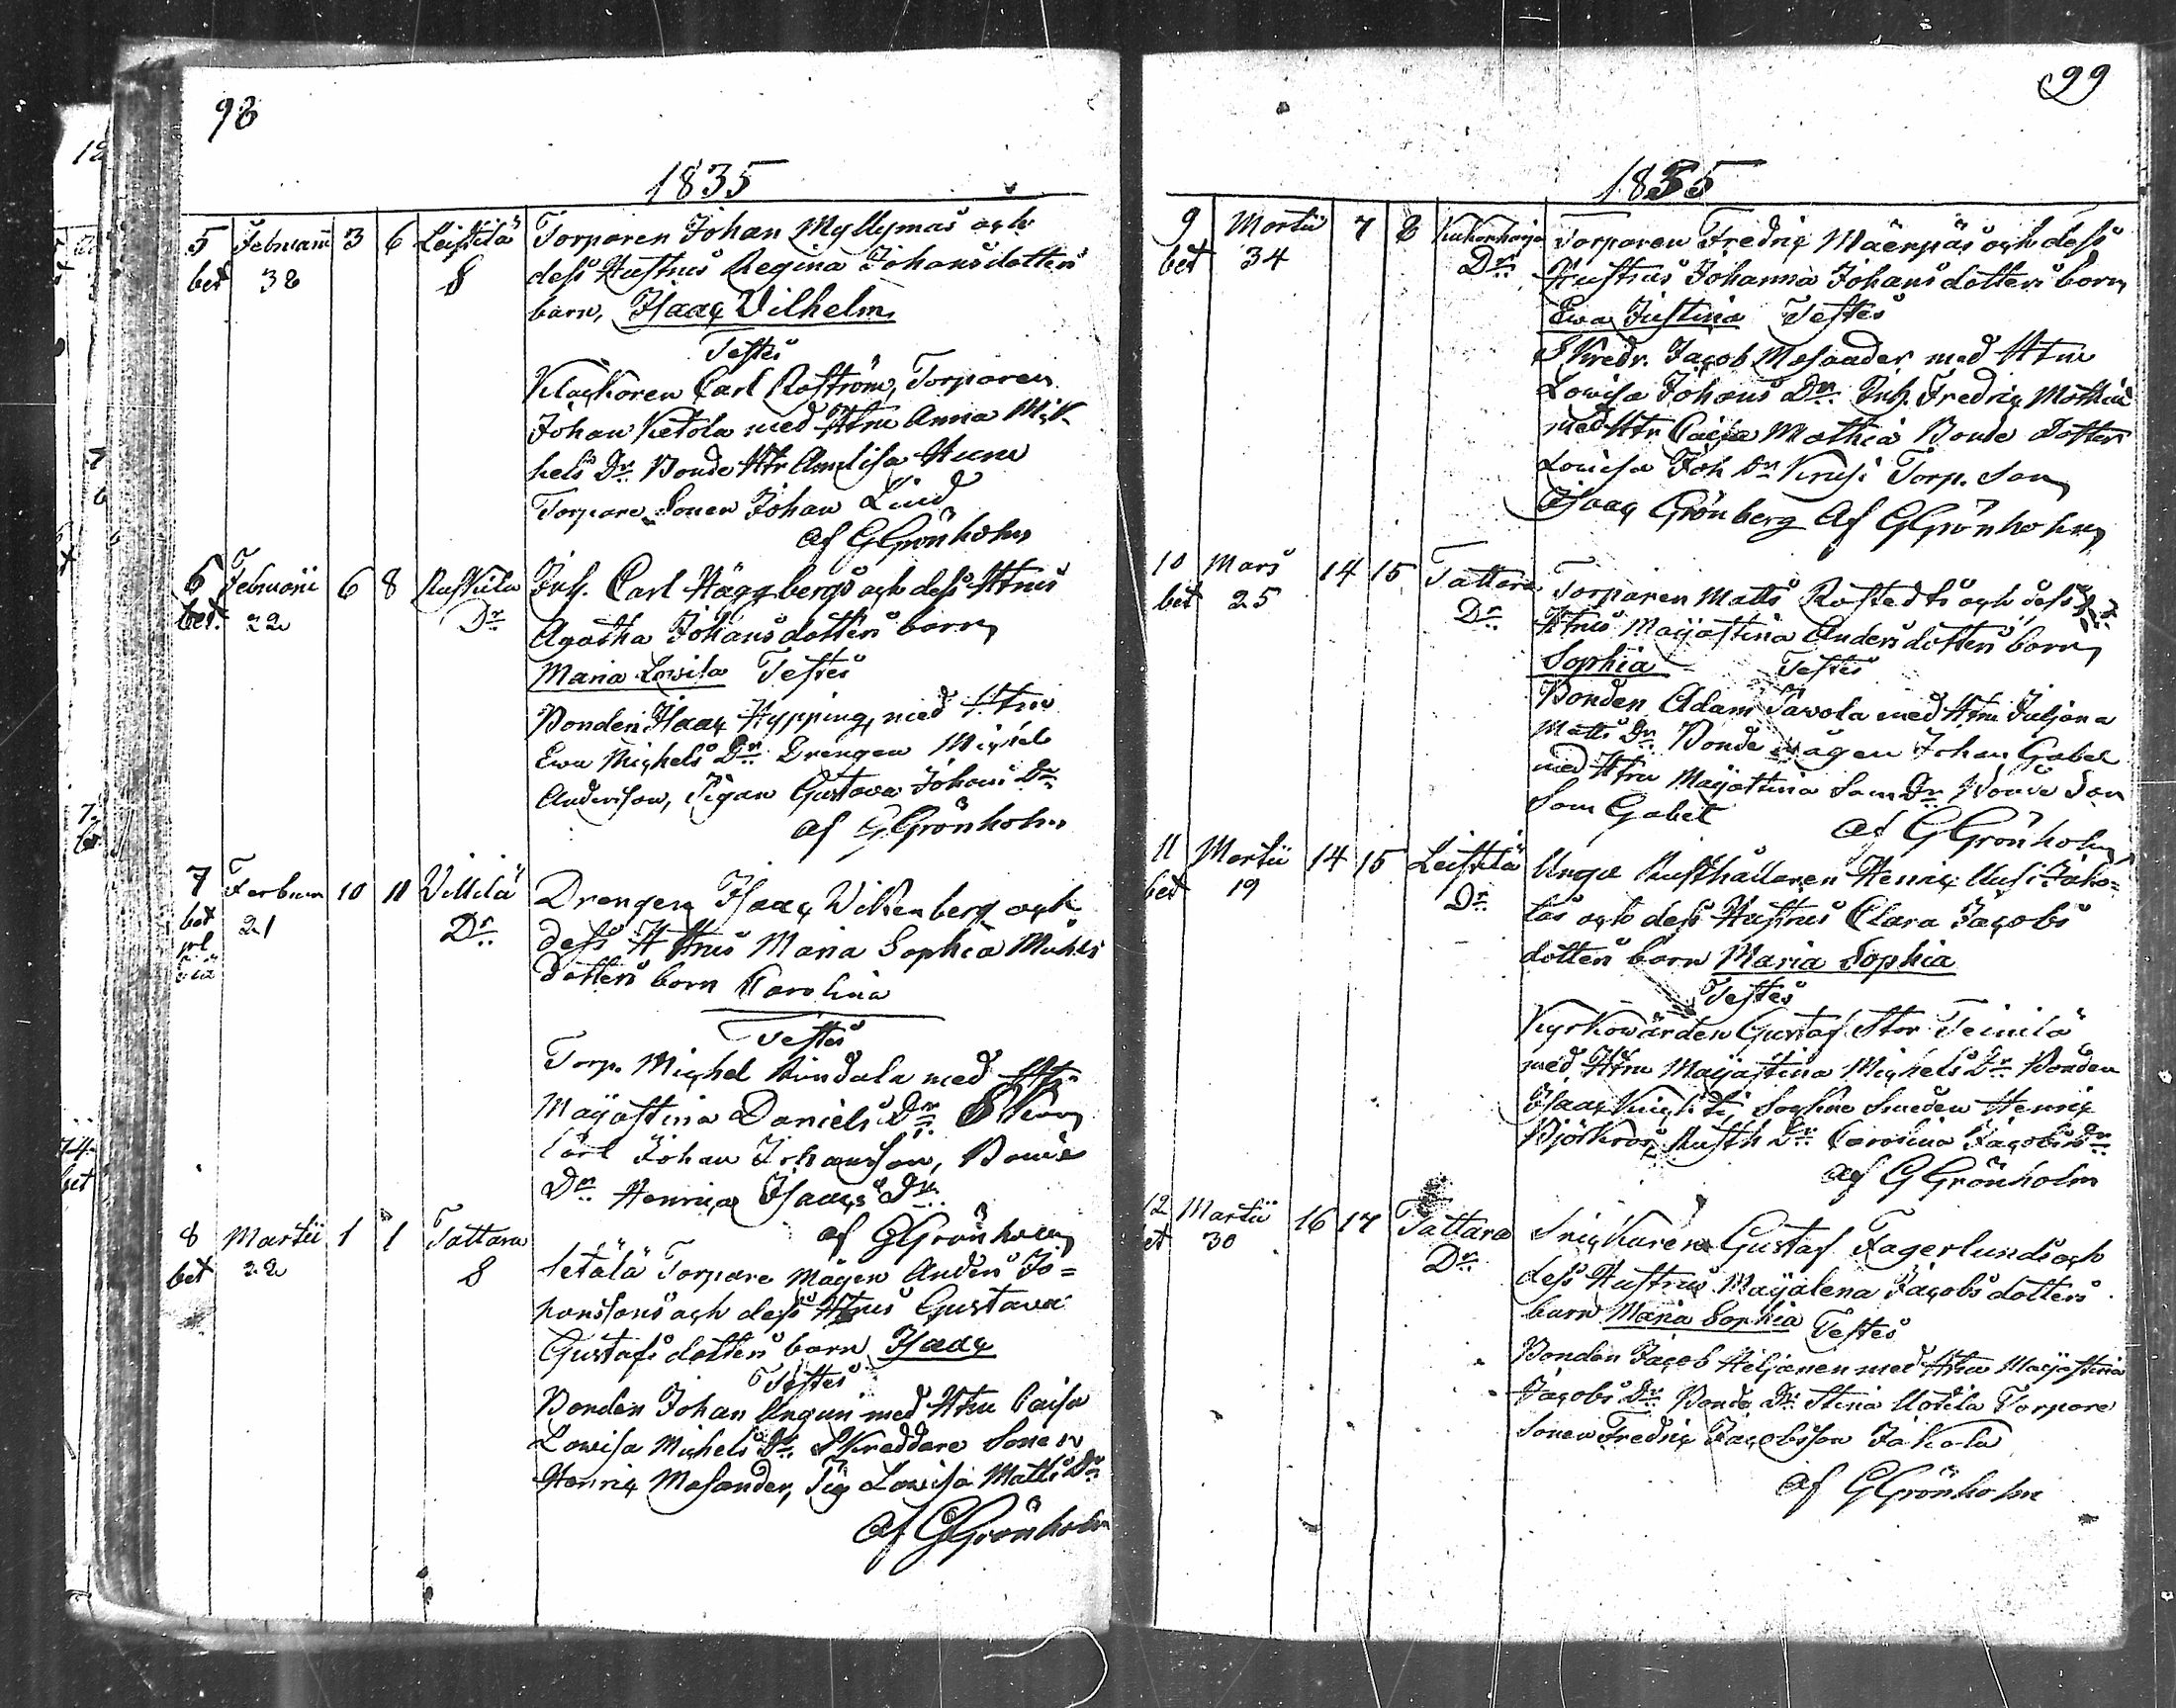 98
1835
5 Februarii 3 6 Leistilä Torparen Johan Myllymäs och
bet 38 S dess Hustrus Regina Johansdotters
barn, Isaac Vilhelm
Testes
Klockoren Carl Roström, Torparen
Johan Ketola med Hru Anna Mic-
kels Dr Bonde Htr Annlisa
Torpare Sonen Johan Lind
af GGrönholm
6 Februarii 6 8 Dr Inh. Carl Häggbergs och dess Htrus
bet. 22 Agatha Johansdotters barn
Maria Lovisa Testes
Bonden Isaac Hypping, med Htru
Ewa Michels Dr Drengen Michel
Andersson, Pigan Gustava Johans Dr
af GGrönholm
7 Ferbum 10 11 Villilä Drengen Isaac Wikenberg och
bet 21 Dr dess Htrus Maria Sophia Michels
dotters barn Carolina
Testes
Torp. Michel med Htr
Majastina Daniels Dr
Carl Johan Johansson, Bonde
Dr Henrica Isaacs Dr
af GGrönholm
8 Martii 1 1 Tattara Setälä Torpare Mågen Anders Jo=
bet 22 S hanssons och dess Htrus Gustava
Gustafs dotters barn Isaac
Testes
Bonden Johan Ungin med Htru Caisa
Lowisa Michels Dr Skreddare Sonen
Henric Mesander, Pig Lowisa Matts Dr
af GGrönholm
99
1835
9 Martii 7 8 Kukonharja Torparen Fredric Mäenpäs och dess
bet 34 Dr Hustrus Johanna Johansdotters barn
Ewa Justina Testes
Skredr. Jacob Mesander med Htru
Lowisa Johans Dr Inh. Fredric
med Htr Caisa Mathia Bonde dotter
Lovisa Joh Dr Krusi Torp. Son
Isaac Grönberg Af GGrönholm
10 Mars 14 15 Tattara Torparen Matts Rostedts och dess
bet 25 Dr Htrus Majastina Anders dotters barn
Sophia Testes
Bonden Adam Tavola med Htru Juljana
Matts Dr Bonde Mågen Johan Gabel
med Htru Majastina Sam Dr Bonde Son
Sam Gabel
af GGrönholm
11 Martii 14 15 Leistilä Unga Rusthållaren Henric Uusi Jako=
bet 19 Dr las och dess Hustrus Clara Jacobs
dotters barn Maria Sophia
Testes
Kyrkowärden Gustaf Stor Teinilä
med Htru Majastina Michels Dr Bonden
Isaac Sockne Smeden Henric
Björkroos Rusth Dr Carolina Jacobs Dr
af GGrönholm
12 Martii 16 17 Tattara Snickaren Gustaf Fagerlunds och
et 30 Dr dess Hustrus Majalena Jacobs dotters
barn Maria Sophia Testes
Bonden Jacob Heljanen med Htru Majastina
Jacobs Dr Bonde Dr Stina Torpare
Sonen Fredric Jacobsson Jakola
af GGrönholm